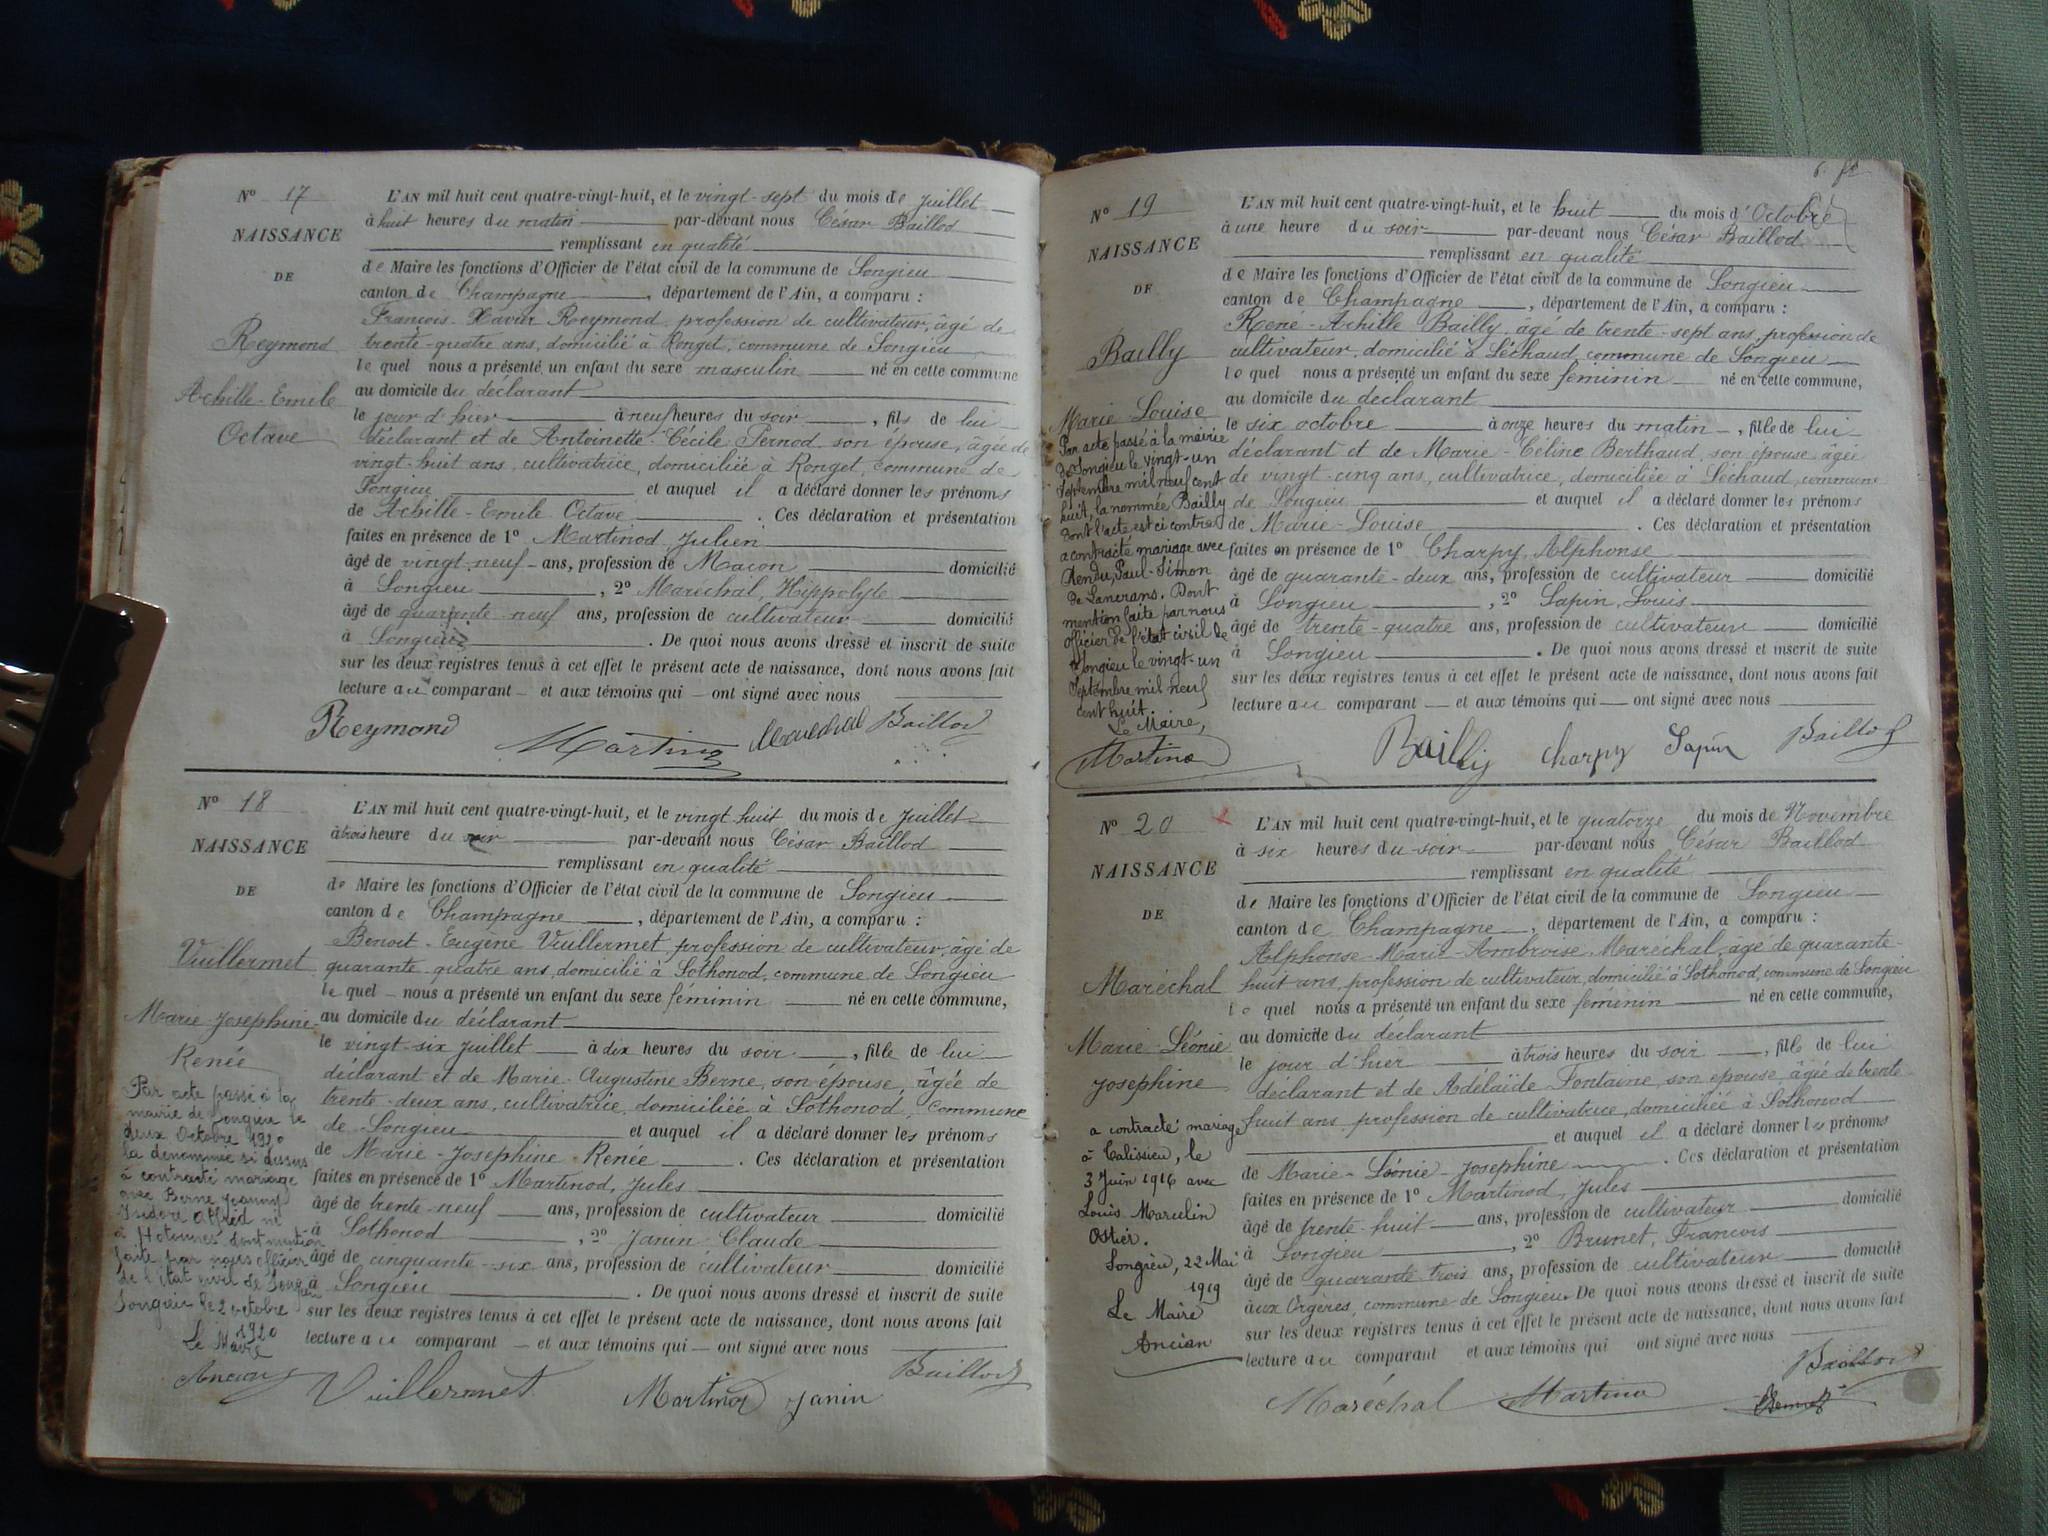 N° 17
L'AN mil huit cent quatre-vingt-huit, et le vingt-sept du mois de juillet
à huit heures du matin par-devant nous César Baillod
NAISSANCE
remplissant en qualité
de Maire les fonctions d'Officier de l'état civil de la commune de Songieu
DE
canton de Champagne, département de l'Ain, a comparu :
François-Xavier Reymond, profession de cultivateur, âgé de
Reymond
trente-quatre ans, domicilié à Ronget, commune de Songieu
lequel nous a présenté un enfant du sexe masculin né en cette commune
Achille-Emile
au domicile du déclarant
le jour d'hier à neuf heures du soir, fils de lui
Octave
déclarant et de Antoinette-Cécile Pernod son épouse, âgée de
vingt-huit ans, cultivatrice, domiciliée à Ronget, commune de
Songieu et auquel il a déclaré donner les prénoms
de Achille-Emile Octave. Ces déclaration et présentation
faites en présence de 1° Martinod, Julien
âgé de vingt-neuf ans, profession de Maçon domicilié
à Songieu, 2° Maréchal, Hippolyte
âgé de quarante-neuf ans, profession de cultivateur domicilié
à Songieu. De quoi nous avons dressé et inscrit de suite
sur les deux registres tenus à cet effet le présent acte de naissance, dont nous avons fait
lecture au comparant et aux témoins qui ont signé avec nous
Reymond Martinod Maréchal Baillod
N° 18
L'AN mil huit cent quatre-vingt-huit, et le vingt huit du mois de juillet
à trois heure du soir par-devant nous César Baillod
NAISSANCE
remplissant en qualité
DE
de Maire les fonctions d'Officier de l'état civil de la commune de Songieu
canton de Champagne, département de l'Ain, a comparu :
Benoit-Eugène Vuillermet, profession de cultivateur, âgé de
Vuillermet
quarante-quatre ans, domicilié à Sothonod, commune de Songieu
lequel nous a présenté un enfant du sexe féminin né en cette commune,
Marie-Josephine-
au domicile du déclarant
le vingt-six juillet à dix heures du soir, fille de lui
Renée
déclarant et de Marie-Augustine Berne, son épouse, âgée de
trente-deux ans, cultivatrice, domiciliée à Sothonod, commune
de Songieu et auquel il a déclaré donner les prénoms
de Marie-Josephine Renée. Ces déclaration et présentation
faites en présence de 1° Martinod, Jules
âgé de trente-neuf ans, profession de cultivateur domicilié
à Sothonod, 2° Janin Claude
âgé de cinquante-six ans, profession de cultivateur domicilié
à Songieu. De quoi nous avons dressé et inscrit de suite
sur les deux registres tenus à cet effet le présent acte de naissance, dont nous avons fait
lecture au comparant et aux témoins qui ont signé avec nous
Par acte passé à la
mairie de Songieu le
deux Octobre 1920
la dénommée si dessus
à contracté mariage
avec Berne Jeanny
Isidore Alfred né
à Hotonnes dont mention
faite par nous officier
de l'état civil de Songieu
Songieu le 2 octobre
1920
Le Maire
Ancian
Vuillermet Martinod Janin Baillod
N° 19
L'AN mil huit cent quatre-vingt-huit, et le huit du mois d'Octobre
à une heure du soir par-devant nous César Baillod
NAISSANCE
remplissant en qualité
de Maire les fonctions d'Officier de l'état civil de la commune de Songieu
DE
canton de Champagne, département de l'Ain, a comparu :
René-Achille Bailly, âgé de trente-sept ans, profession de
Bailly
cultivateur, domicilié à Séchaud, commune de Songieu
lequel nous a présenté un enfant du sexe féminin né en cette commune,
au domicile du déclarant
Marie-Louise
le six octobre à onze heures du matin, fille de lui
déclarant et de Marie-Céline Berthaud, son épouse âgée
de vingt-cinq ans, cultivatrice, domiciliée à Séchaud, commune
de Songieu et auquel il a déclaré donner les prénoms
de Marie-Louise. Ces déclaration et présentation
faites en présence de 1° Charpy, Alphonse
âgé de quarante-deux ans, profession de cultivateur domicilié
à Songieu, 2° Sapin, Louis
âgé de trente-quatre ans, profession de cultivateur domicilié
à Songieu. De quoi nous avons dressé et inscrit de suite
sur les deux registres tenus à cet effet le présent acte de naissance, dont nous avons fait
lecture au comparant et aux témoins qui ont signé avec nous
Par acte passé à la mairie
de Songieu le vingt-un
Septembre mil neuf cent
huit, la nommée Bailly
dont l'acte est ci contre
a contracté mariage avec
Rendu, Paul-Simon
de Lancrans. Dont
mention faite par nous
officier de l'état civil de
Songieu le vingt-un
Septembre mil neuf
cent huit.
Le Maire,
Martinod
Bailly Charpy Sapin Baillod
N° 20
L'AN mil huit cent quatre-vingt-huit, et le quatorze du mois de Novembre
à six heures du soir par-devant nous César Baillod
NAISSANCE
remplissant en qualité
de Maire les fonctions d'Officier de l'état civil de la commune de Songieu
DE
canton de Champagne, département de l'Ain, a comparu :
Alphonse-Marie-Ambroise Maréchal, âgé de quarante-
Maréchal
huit ans, profession de cultivateur, domicilié à Sothonod, commune de Songieu
lequel nous a présenté un enfant du sexe féminin né en cette commune,
au domicile du déclarant
Marie-Léonie
le jour d'hier à trois heures du soir, fille de lui
Josephine
déclarant et de Adélaïde Fontaine, son épouse âgée de trente
huit ans profession de cultivatrice, domiciliée à Sothonod
et auquel il a déclaré donner les prénoms
de Marie-Léonie-Josephine. Ces déclaration et présentation
faites en présence de 1° Martinod, Jules
âgé de trente-huit ans, profession de cultivateur domicilié
à Songieu, 2° Brunet, François
âgé de quarante trois ans, profession de cultivateur domicilié
aux Orgères, commune de Songieu. De quoi nous avons dressé et inscrit de suite
sur les deux registres tenus à cet effet le présent acte de naissance, dont nous avons fait
lecture au comparant et aux témoins qui ont signé avec nous
a contracté mariage
à Talissieu, le
3 Juin 1916 avec
Louis Marculin
Ostier.
Songieu, 22 Mai
1919
Le Maire
Ancian
Maréchal Martinod Baillod